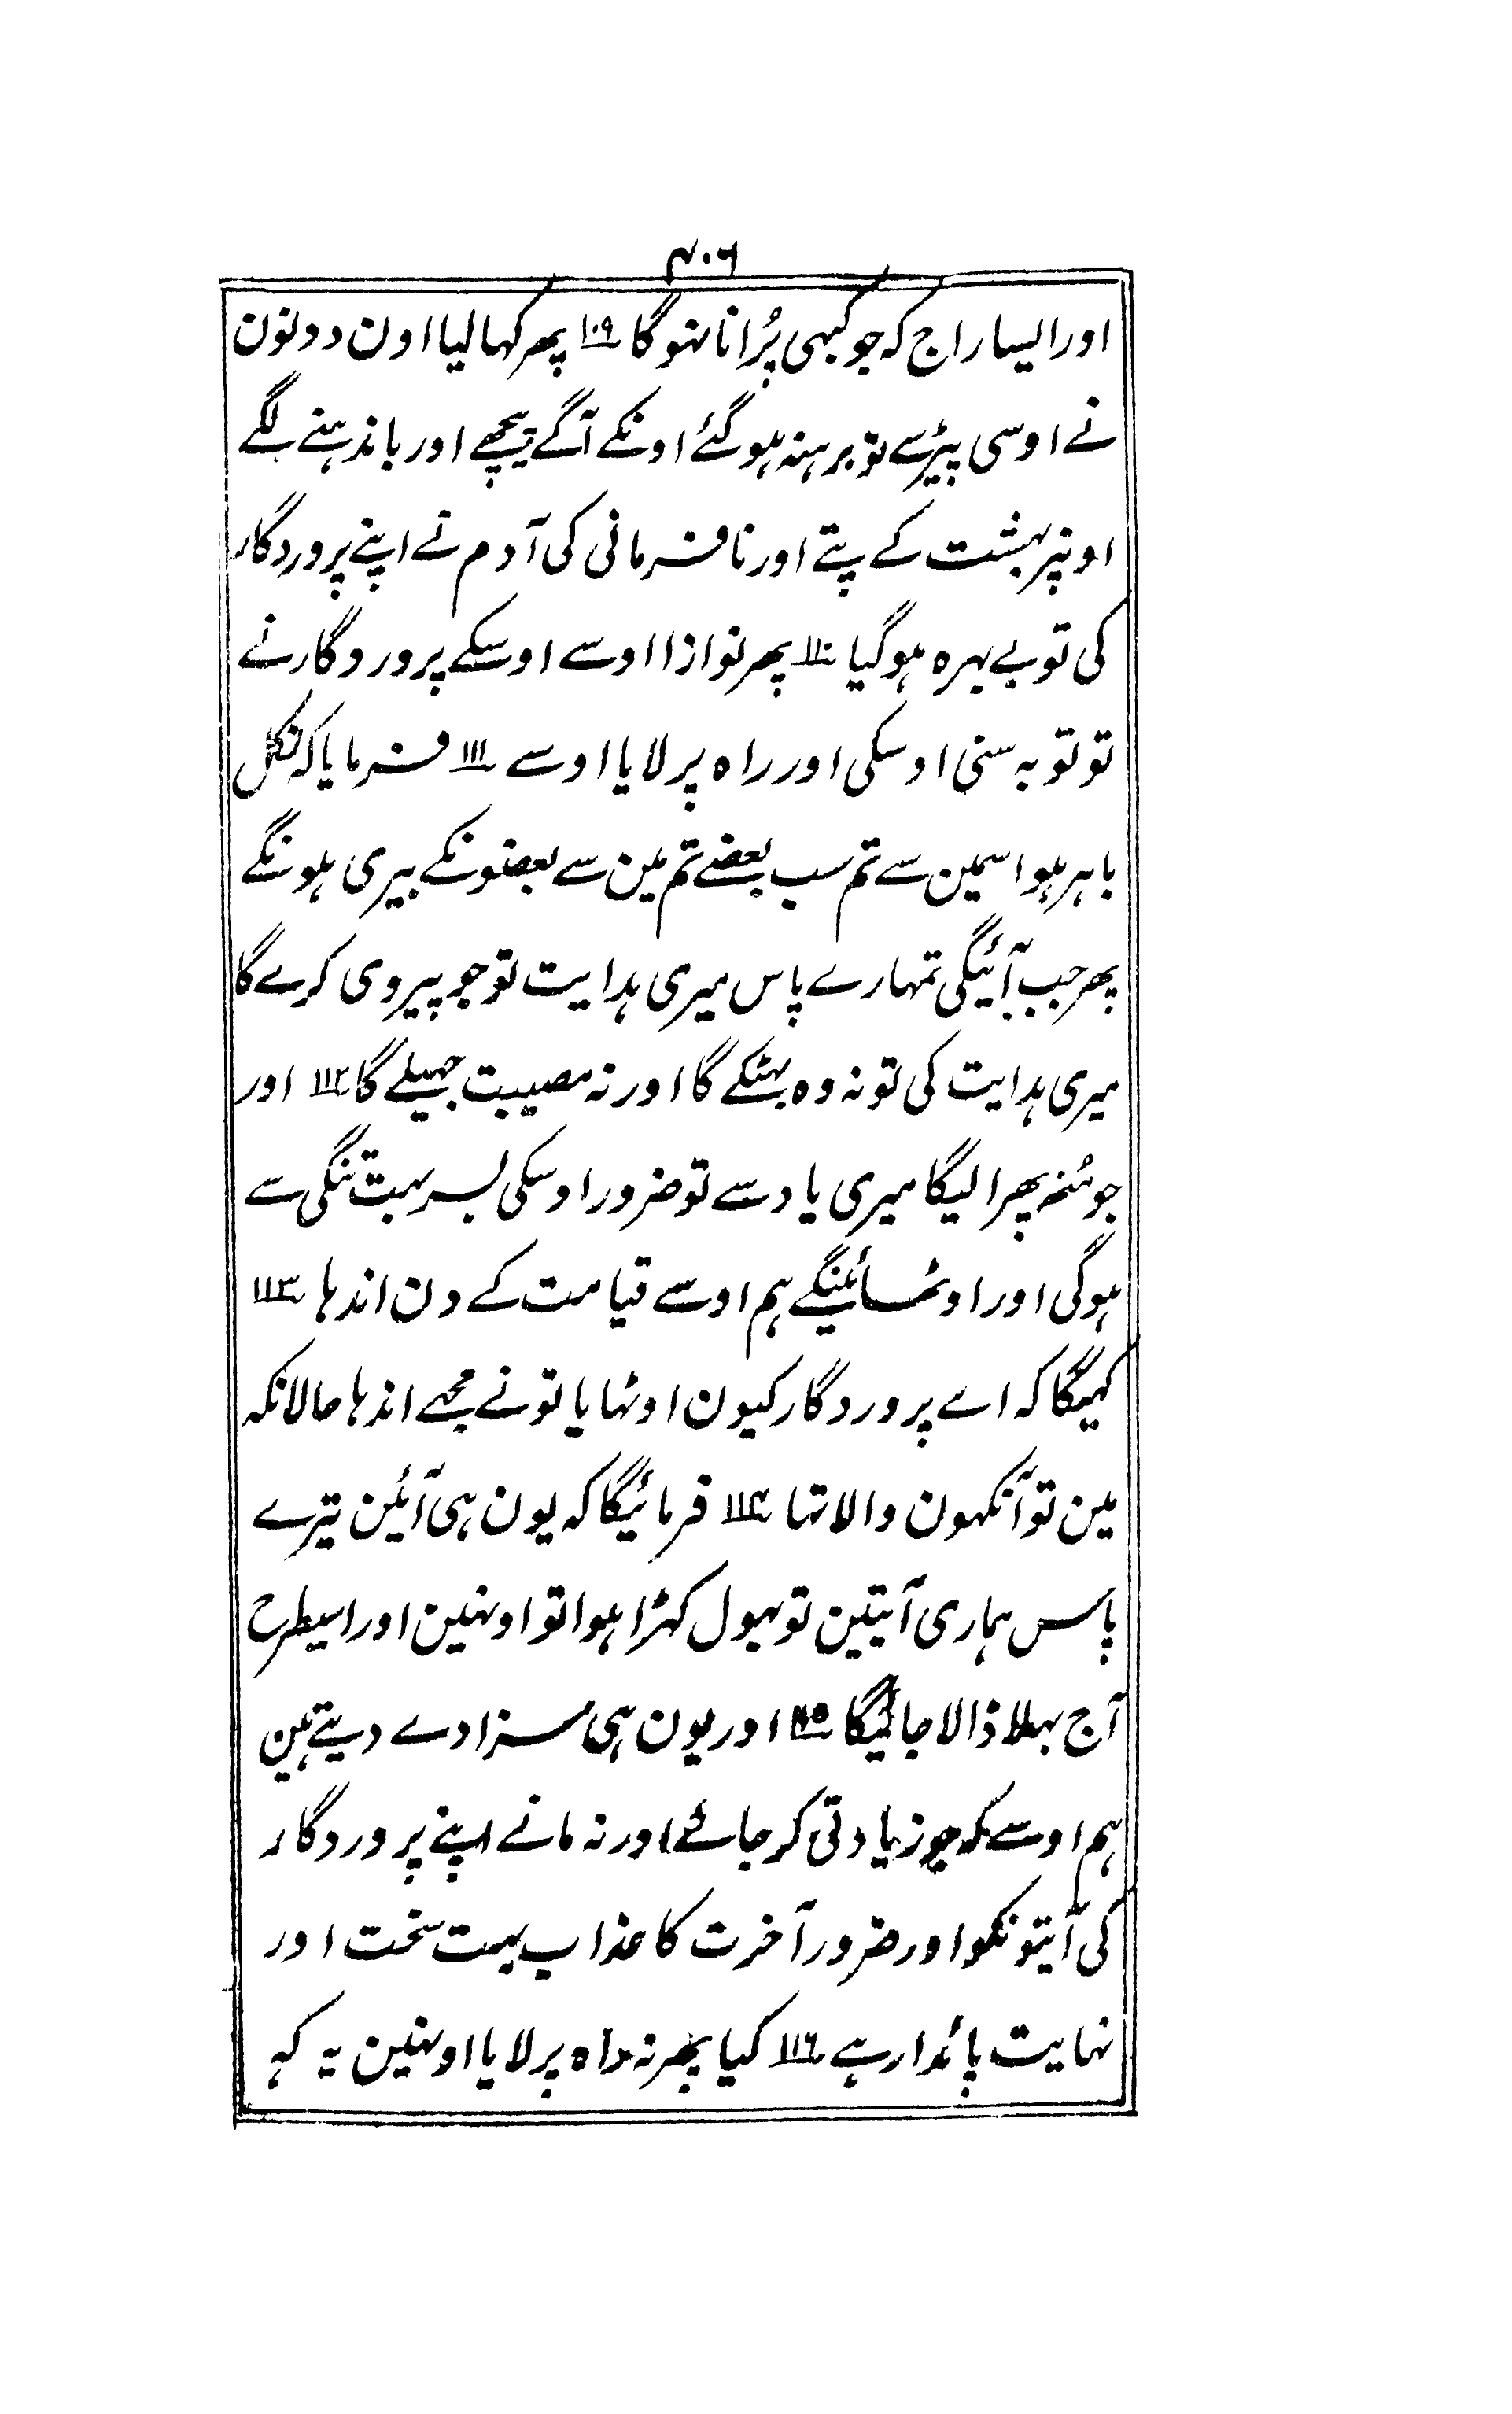 ۴۰۶
اور ایسا راج کہ جو کبہی پُرانا نہوگا ۱۰۹ پھر کہا لیا اون دونون
نے اوسی پیڑ سے تو برہنہ ہو گئے اونکے آگے پیچھے اور باندہنے لگے
اونپر بہشت کے پتے اور نافرمانی کی آدم نے اپنے پروردگار
کی تو بے بہرہ ہو گیا ۱۱۰ پھر نوازا اوسے اوسکے پروردگار نے
تو توبہ سنی اوسکی اور راہ پر لایا اوسے ۱۱۱ فرمایا کہ نکل
باہر ہو اسمین سے تم سب بعضے تم مین سے بعضونکے بیری ہونگے
پھر جب آئیگی تمہارے پاس میری ہدایت تو جو پیروی کرے گا
میری ہدایت کی تو نہ وہ بہٹکے گا اور نہ مصیبت جہیلے گا ۱۱۲ اور
جو مُنھ پھرا لیگا میری یاد سے تو ضرور اوسکی بسر بہت تنگی سے
ہوگی اور اوٹھائینگے ہم اوسے قیامت کے دن اندہا ۱۱۳
کہیگا کہ اے پروردگار کیون اوٹہایا تو نے مجھے اندہا حالانکہ
مین تو آنکہون والا تہا ۱۱۴ فرمائیگا کہ یون ہی آئین تیرے
پاس ہماری آیتین تو بہول کہڑا ہوا تو اونہین اور اسیطرح
آج بہلا ڈالا جائیگا ۱۱۵ اور یون ہی سزا دے دیتے ہین
ہم اوسے کہ جو زیادتی کر جائے اور نہ مانے اپنے پروردگار
کی آیتونکو اور ضرور آخرت کا عذاب بہت سخت اور
نہایت پائدار ہے ۱۱۶ کیا پھر نہ راہ پر لایا اونہین یہ کہ